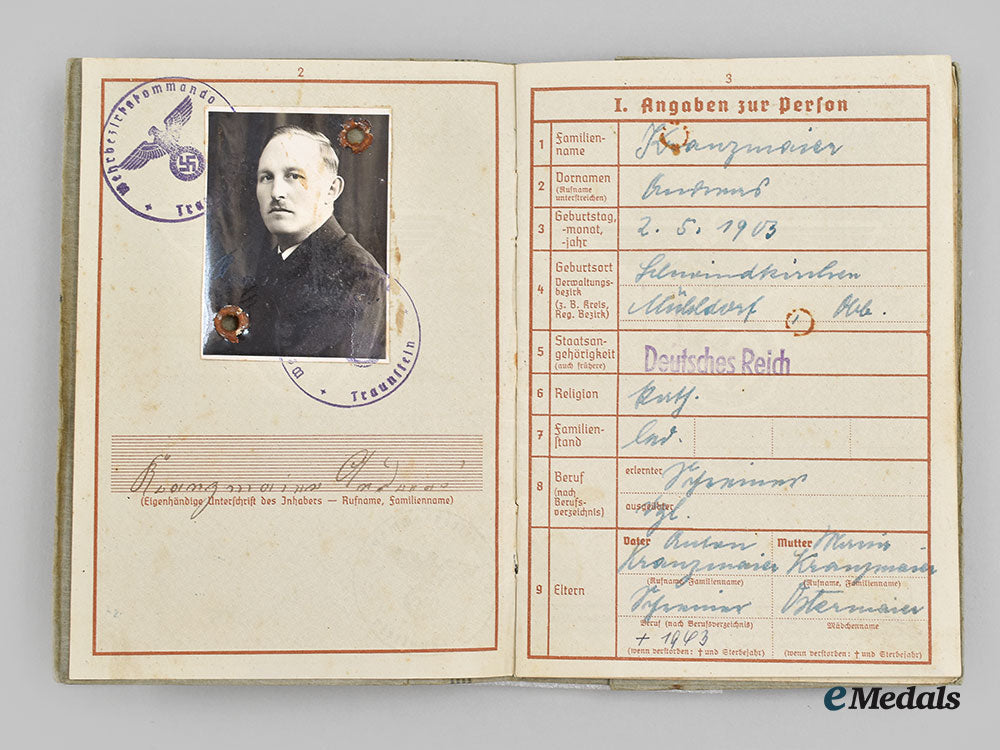 2
Wehrbezirkskommando
Trau
Traunstein
Kranzmaier Andreas
(Eigenhändige Unterschrift des Inhabers — Rufname, Familienname)
3
I. Angaben zur Person
1 Familien-
name
Kranzmaier
2 Vornamen
(Rufname
unterstreichen)
Andreas
3 Geburtstag,
-monat,
-jahr
2. 5. 1903
4 Geburtsort
Verwaltungs-
bezirk
(z. B. Kreis,
Reg. Bezirk)
Schwindkirchen
Mühldorf Obb.
5 Staatsan-
gehörigkeit
(auch frühere)
Deutsches Reich
6 Religion
kath.
7 Familien-
stand
led.
8 Beruf
(nach
Berufs-
verzeichnis)
erlernter Schreiner
ausgeübter
9 Eltern
Vater Anton
Kranzmaier
(Rufname, Familienname)
Schreiner
Beruf (nach Berufsverzeichnis)
+ 1943
(wenn verstorben: † und Sterbejahr)
Mutter Maria
Kranzmaier
(Rufname, Familienname)
Ostermaier
Mädchenname
(wenn verstorben: † und Sterbejahr)
eMedals